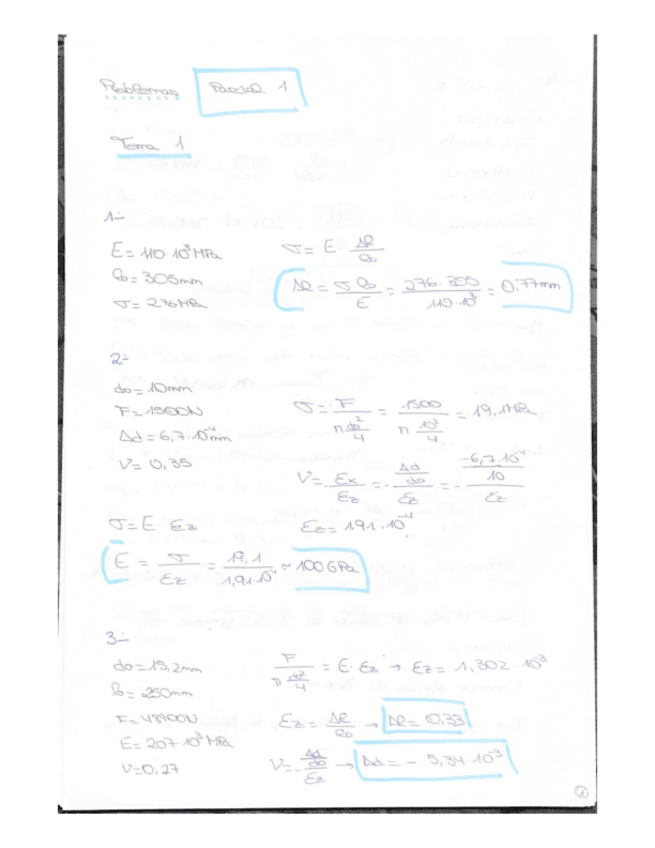 Problemas Parcial 1
Tema 1
1-
E = 110·10³ MPa
l₀ = 305mm
σ = 276 MPa
σ = E · Δl/l₀
Δl = σ l₀/E = 276·305/110·10³ = 0,77mm
2-
d₀ = 10mm
F = 1500N
Δd = 6,7·10⁻⁴mm
ν = 0,35
σ = F/(π d₀²/4) = 1500/(π 10²/4) = 19,1MPa
ν = - εx/εz = - (Δd/d₀)/εz = - (-6,7·10⁻⁴/10)/εz
σ = E · εz
εz = 1,91·10⁻⁴
E = σ/εz = 19,1/1,91·10⁻⁴ ≈ 100GPa
3-
d₀ = 15,2mm
l₀ = 250mm
F = 48900N
E = 207·10³ MPa
ν = 0,27
F/(π d₀²/4) = E · εz → εz = 1,302·10⁻³
εz = Δl/l₀ → Δl = 0,33
ν = - (Δd/d₀)/εz → Δd = - 5,34·10⁻³
1